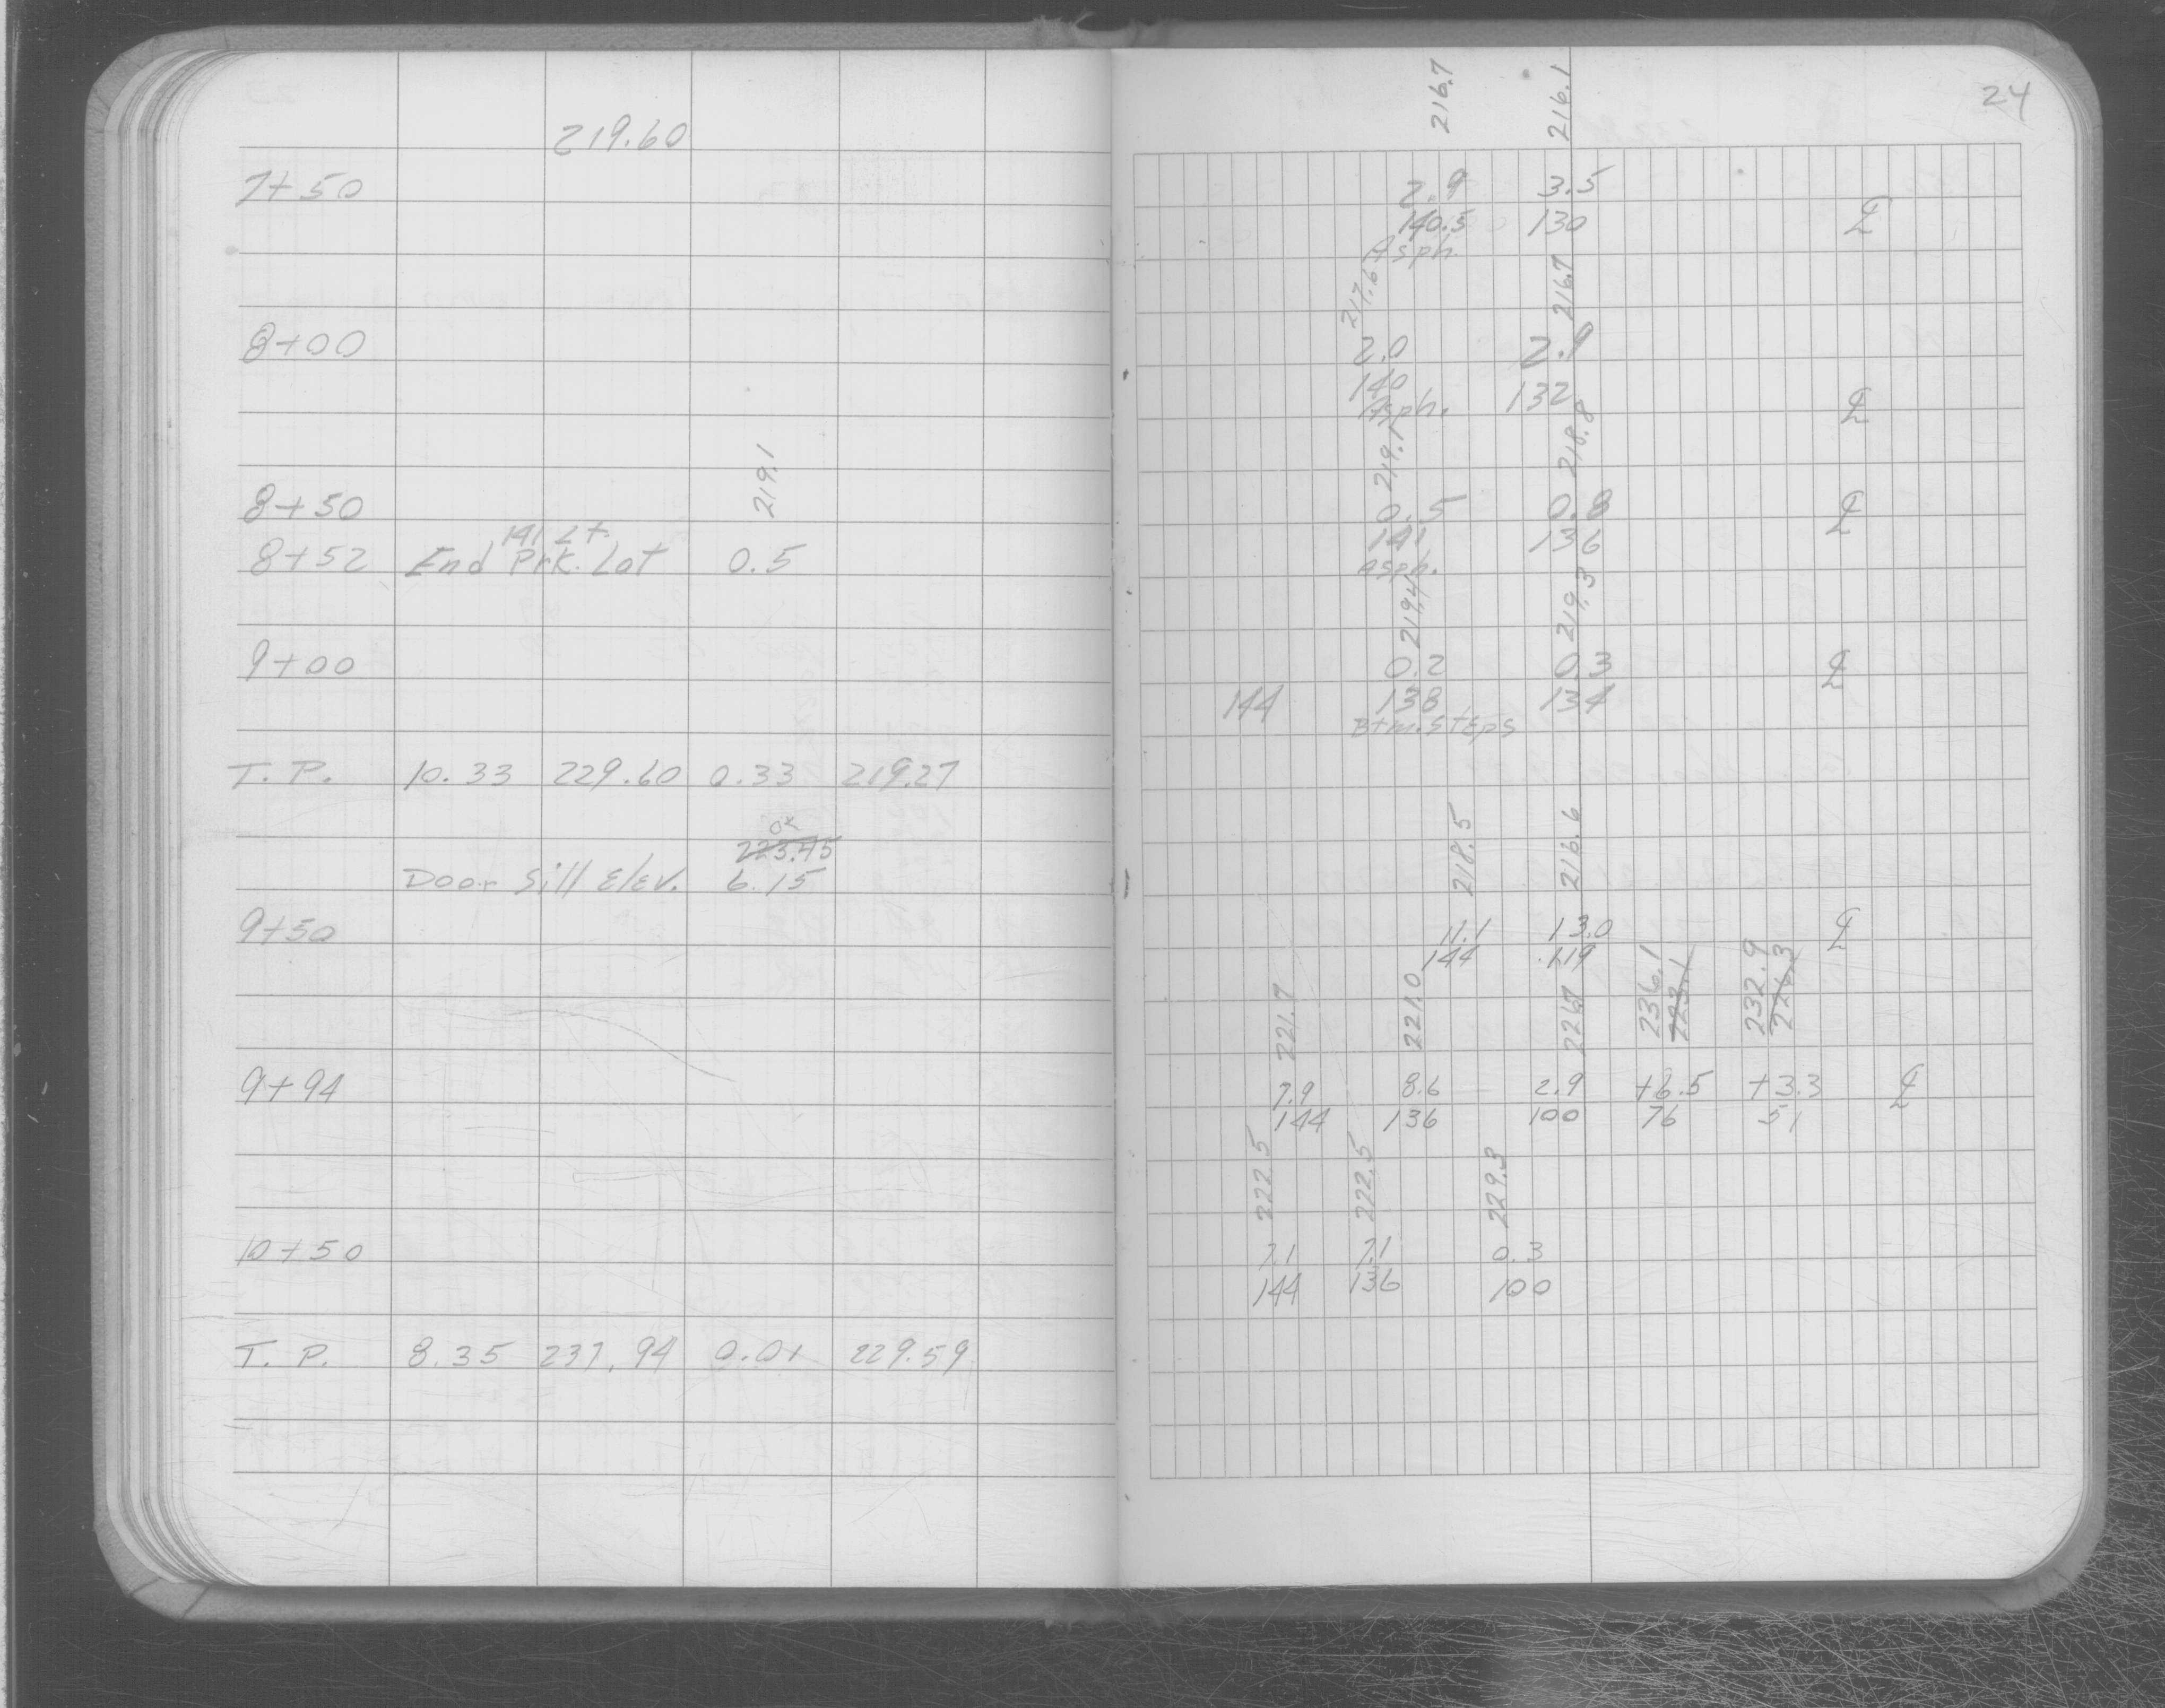 219.60
7+50
8+00
219.1
8+50
141 Lt.
8+52 End Prk. Lot 0.5
9+00
T. P. 10.33 229.60 0.33 219.27
OK
223.45
Door Sill Elev. 6.15
9+50
9+94
10+50
T. P. 8.35 237.94 0.01 229.59
24
216.7 216.1
2.9 3.5
140.5 130 ℄
Asph.
217.6 216.7
2.0 2.9
140 132 ℄
Asph.
219.1 218.8
0.5 0.8 ℄
141 136
Asph.
219.4 219.3
0.2 0.3 ℄
144 138 134
Btm. Steps
218.5 216.6
11.1 13.0 ℄
144 119
221.7 221.0 226.7 236.1 232.9
223.1 226.3
7.9 8.6 2.9 +6.5 +3.3 ℄
144 136 100 76 51
222.5 222.5 229.3
7.1 7.1 0.3
144 136 100